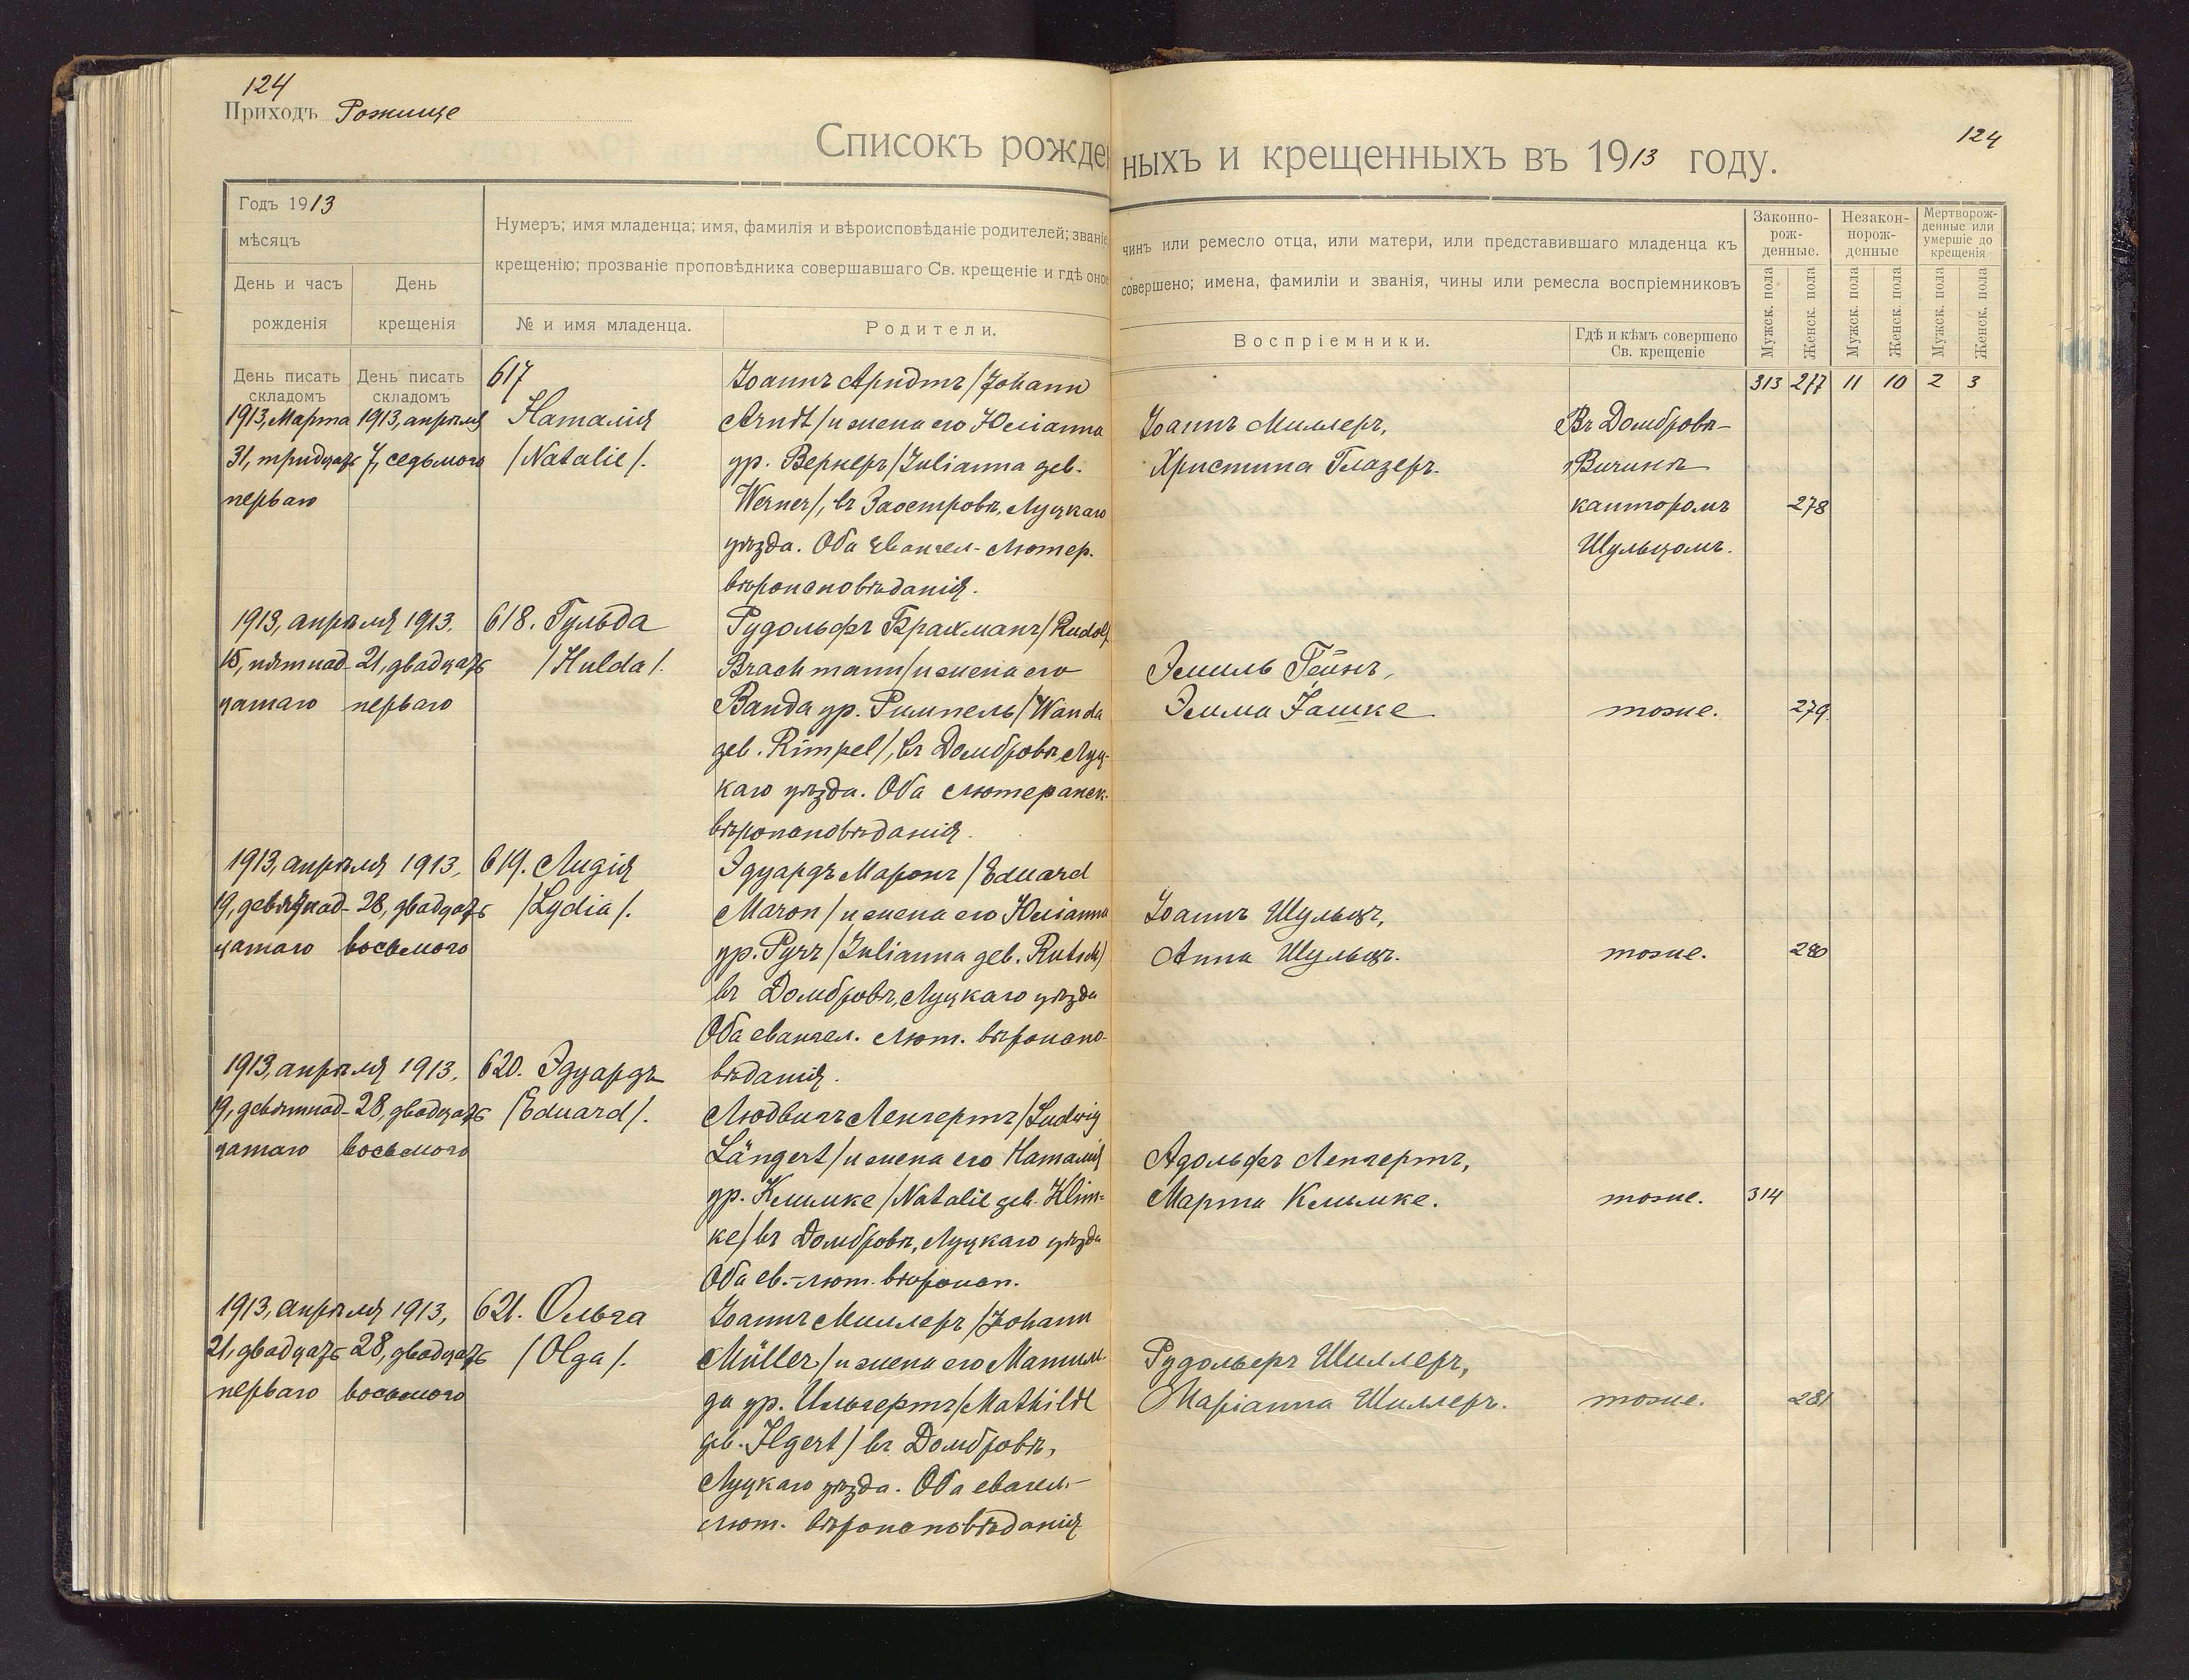 124
Приходъ Рожище
Списокъ рожденныхъ и крещенныхъ въ 1913 году.
124
Годъ 1913
мѣсяцъ
День и часъ рожденія
День крещенія
Нумеръ; имя младенца; имя, фамилія и вѣроисповѣданіе родителей; званіе, чинъ или ремесло отца, или матери, или представившаго младенца къ
крещенію; прозваніе проповѣдника совершавшаго Св. крещеніе и гдѣ оное совершено; имена, фамиліи и званія, чины или ремесла воспріемниковъ
№ и имя младенца.
Родители.
Воспріемники.
Гдѣ и кѣмъ совершено
Св. крещеніе
Законно-
рож-
денные.
Незакон-
норож-
денные
Мертворож-
денные или
умершіе до
крещенія
Мужск. пола
Женск. пола
Мужск. пола
Женск. пола
Мужск. пола
Женск. пола
День писать
складомъ
День писать
складомъ
313 277 11 10 2 3
1913, Марта
31, тридцать
перваго
1913, апрѣля
7, седьмого
617
Наталія
/Natalie/.
Іоаннъ Арндтъ /Johann
Arndt/ и жена его Юліанна
ур. Вернеръ /Julianna geb.
Werner/, въ Заостровѣ, Луцкаго
уѣзда. Оба Евангел.-Лютер.
вѣроисповѣданія.
Іоаннъ Миллеръ,
Христина Глазеръ.
Въ Домбровѣ-
кантором
Шульцомъ.
278
1913, апрѣля
15, пятнад-
цатаго
1913.
21, двадцать
перваго
618. Гульда
/Hulda/.
Рудольфъ Брахманъ /Rudolf
Brachmann/ и жена его
Ванда ур. Римпель /Wanda
geb. Rimpel/, въ Домбровѣ, Луц-
каго уѣзда. Оба лютеранск.
вѣроисповѣданія.
Эмиль Гейнъ,
Эмма Яшке
тоже.
279
1913, апрѣля
19, девятнад-
цатаго
1913,
28, двадцать
восьмого
619. Лидія
/Lydia/.
Эдуардъ Маронъ /Eduard
Maron/ и жена его Юліанна
ур. Рутъ /Julianna geb. Rutsch/
въ Домбровѣ, Луцкаго уѣзда
Оба евангел. лют. вѣроиспо-
вѣданія.
Іоаннъ Шульцъ,
Анна Шульцъ.
тоже.
280
1913, апрѣля
19, девятнад-
цатаго
1913,
28, двадцать
восьмого
620. Эдуардъ
/Eduard/.
Людвигъ Ленгертъ /Ludwig
Längert/ и жена его Наталія
ур. Климке /Natalie geb. Klim-
ke/ въ Домбровѣ, Луцкаго уѣзда
Оба ев.-лют. вѣроисп.
Адольфъ Ленгертъ,
Марта Климке.
тоже.
314
1913, апрѣля
21, двадцать
перваго
1913,
28, двадцать
восьмого
621. Ольга
/Olga/.
Іоаннъ Миллеръ /Johann
Müller/ и жена его Матиль-
да ур. Ильгертъ /Mathilde
geb. Ilgert/ въ Домбровѣ,
Луцкаго уѣзда. Оба евагел.-
лют. вѣроисповѣданія
Рудольфъ Шиллеръ,
Маріанна Шиллеръ.
тоже.
281